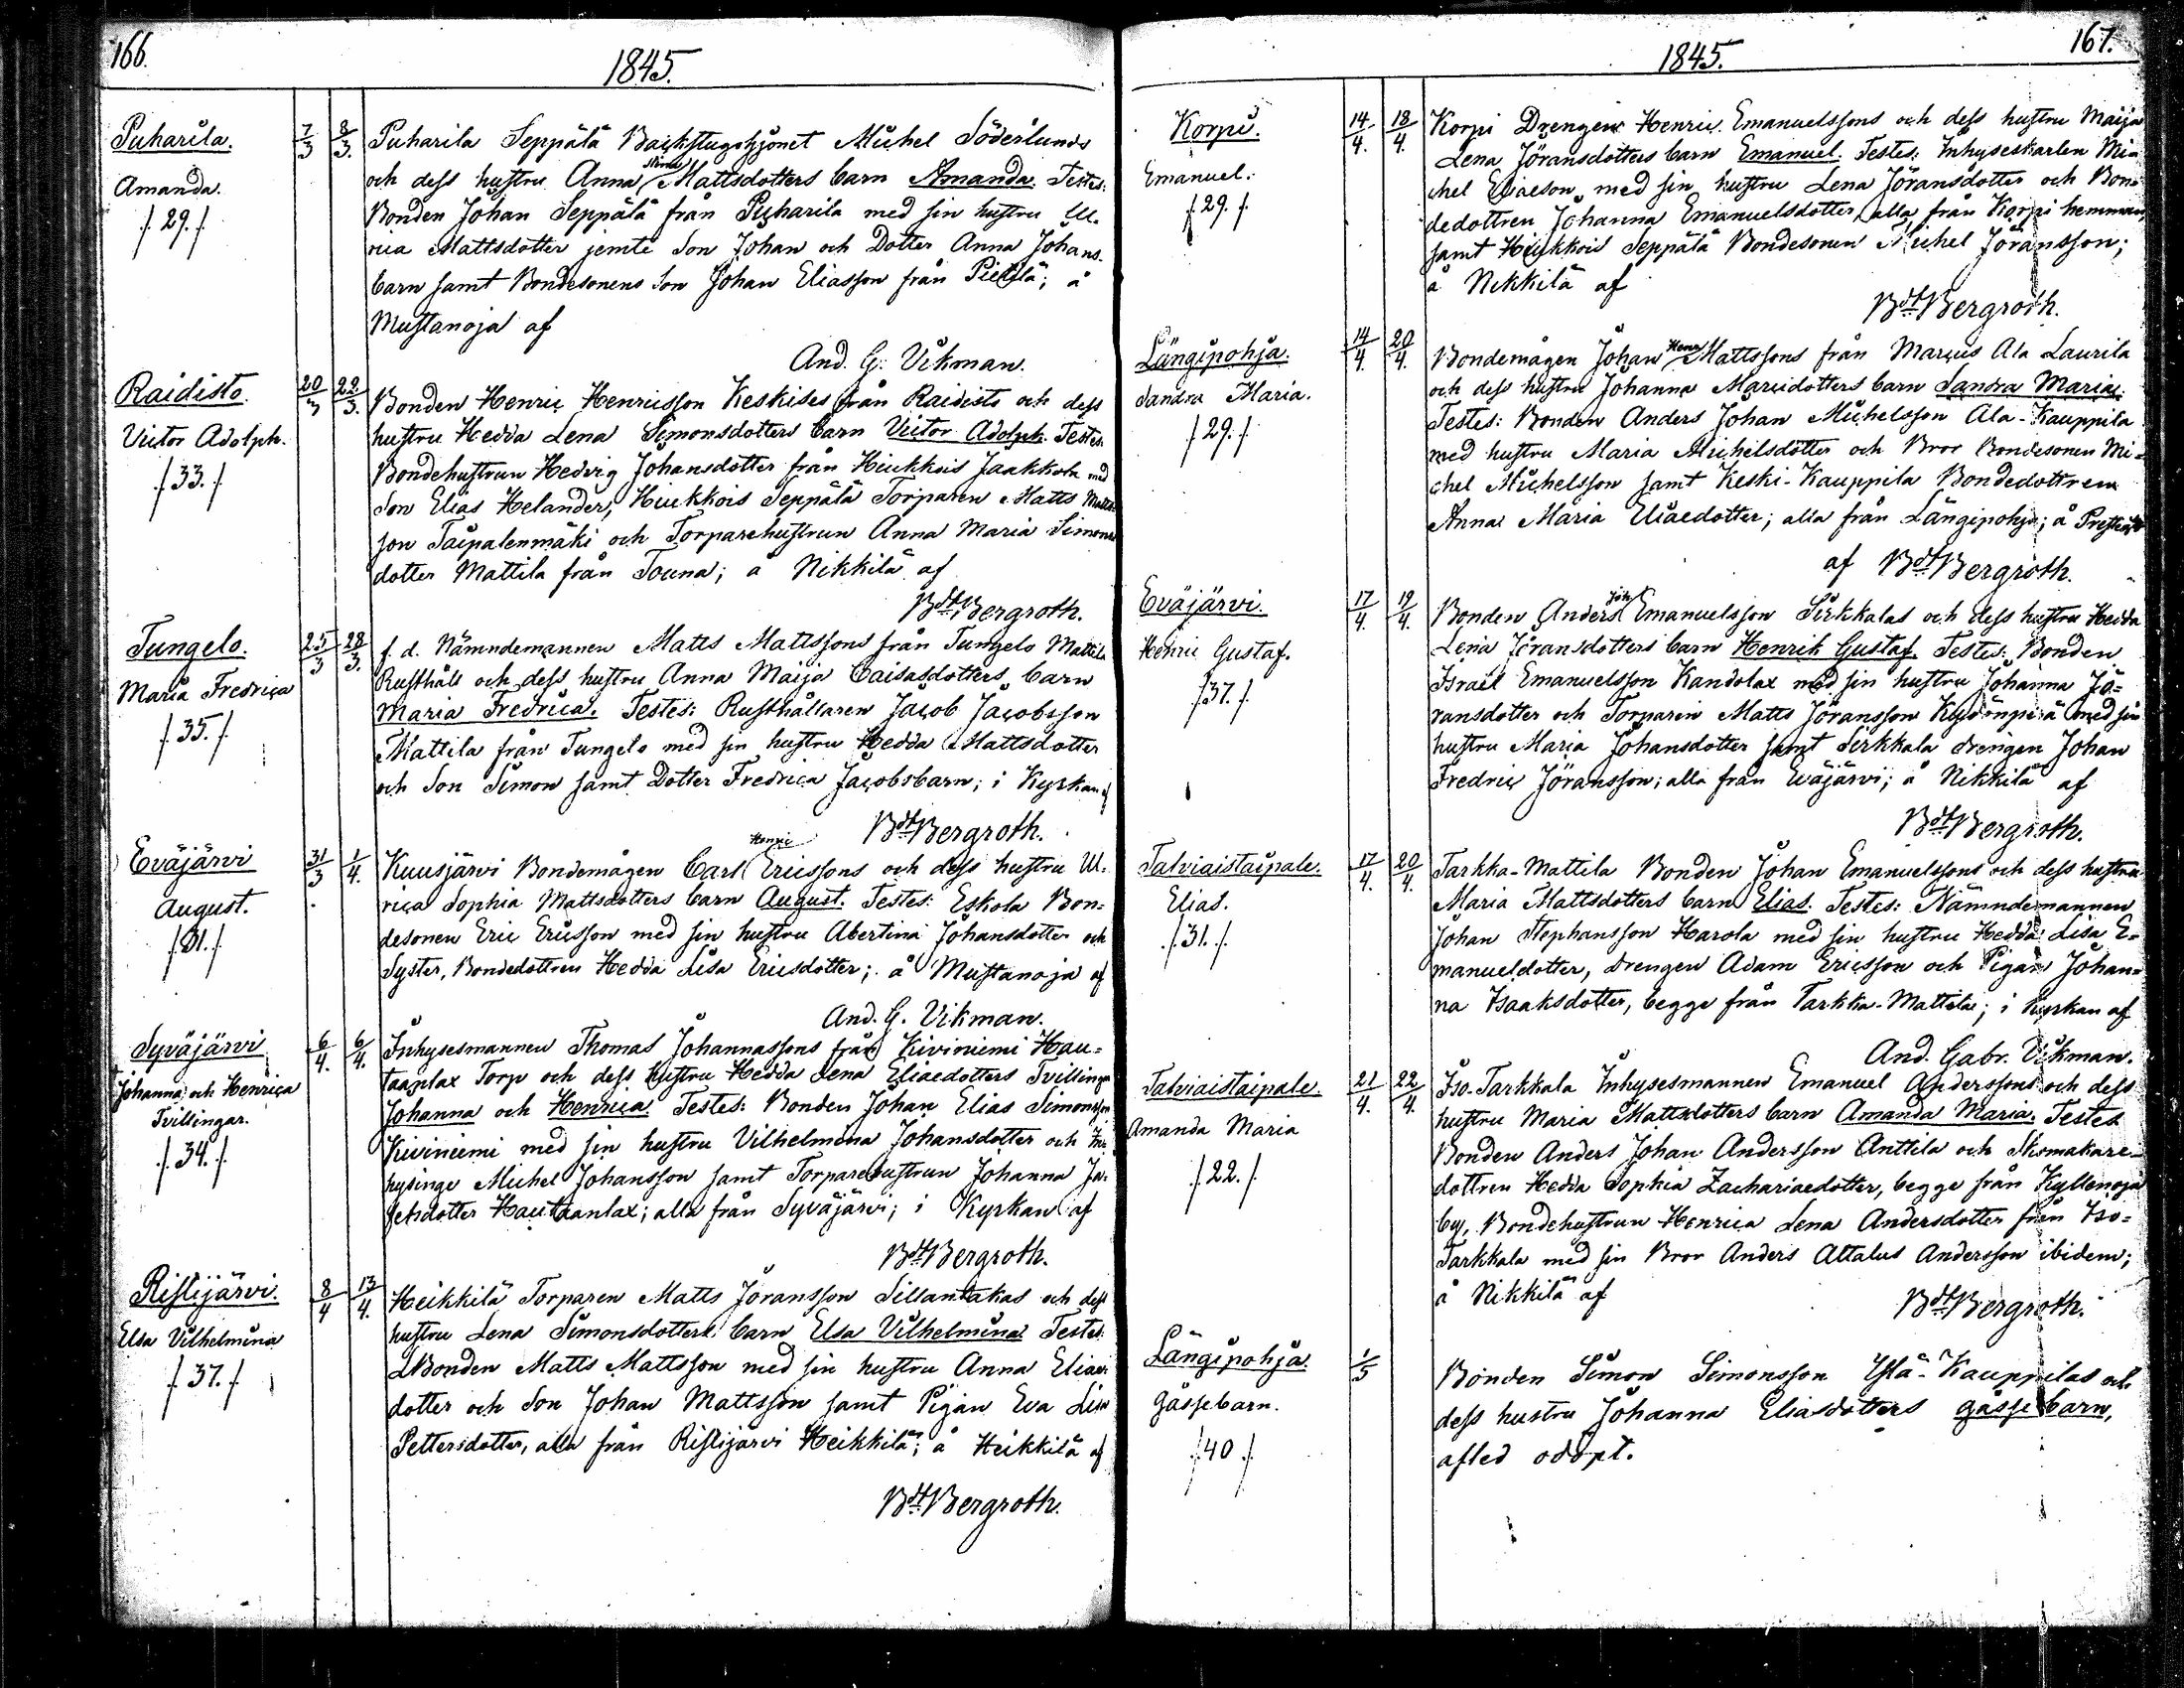 166.
1845.
Puharila.
Amanda.
/.29./
7/3
8/3.
Puharila Seppälä Backstugohjonet Michel Söderlunds
och dess hustru Anna Stina Mattsdotters barn Amanda. Testes:
Bonden Johan Seppälä från Puharila med sin hustru Ul-
rica Mattsdotter jemte Son Johan och Dotter Anna Johans-
barn samt Bondesonens Son Johan Eliasson från Pietilä; å
Mustanoja af
And. G. Vikman.
Raidisto.
Victor Adolph.
/.33./
20/3
22/3.
Bonden Henric Henricsson Keskises från Raidisto och dess
hustru Hedda Lena Simonsdotters barn Victor Adolph. Testes:
Bondehustrun Hedvig Johansdotter från Hiukkois Jaakkola med
Son Elias Helander, Hiukkois Seppälä Torparen Matts Matts-
son Taipalenmäki och Torparehustrun Anna Maria Simons
dotter Mattila från Touna; å Nikkilä af
Bdt Bergroth.
Tungelo.
Maria Fredrica
/.35./
25/3
28/3.
f. d. Nämndemannen Matts Mattssons från Tungelo Mattila
Rusthåll och dess hustru Anna Maija Caisasdotters barn
Maria Fredrica. Testes: Rusthållaren Jacob Jacobsson
Mattila från Tungelo med sin hustru Hedda Mattsdotter
och Son Simon samt Dotter Fredrica Jacobsbarn; i Kyrkan af
Bdt Bergroth.
Eväjärvi
August.
/.31./
31/3
1/4.
Kuusjärvi Bondemågen Carl Henric Ericssons och dess hustru Ul-
rica Sophia Mattsdotters barn August. Testes: Eskola Bon=
desonen Eric Ericsson med sin hustru Abertina Johansdotter och
Syster, Bondedottren Hedda Lisa Ericsdotter; å Mustanoja af
And. G. Vikman.
Syväjärvi
Johanna och Henrica
Tvillingar.
/.34./
6/4.
6/4.
Inhysesmannen Thomas Johannassons från Kiviniemi Hau=
taanlax Torp och dess hustru Hedda Lena Eliaedotters Tvillingar
Johanna och Henrica. Testes: Bonden Johan Elias Simonsson
Kiviniemi med sin hustru Vilhelmina Johansdotter och In-
hysinge Michel Johansson samt Torparehustrun Johanna Ja-
hysdotter Hautaanlax; alla från Syväjärvi; i Kyrkan af
Bdt Bergroth.
Ristijärvi.
Elsa Vilhelmina
/.37./
8/4
13/4.
Heikkilä Torparen Matts Jöransson Sillantakas och dess
hustru Lena Simonsdotters barn Elsa Vilhelmina. Testes:
Bonden Matts Mattsson med sin hustru Anna Eliae-
dotter och Son Johan Mattsson samt Pigan Eva Lisa
Pettersdotter, alla från Ristijärvi Heikkilä; å Heikkilä af
Bdt Bergroth.
1845.
167.
Korpi.
Emanuel.
/.29./
14/4.
18/4.
Korpi Drengen Henric Emanuelssons och dess hustru Maija
Lena Jöransdotters barn Emanuel. Testes: Inhyseskarlen Mi-
chel Eliaeson med sin hustru Lena Jöransdotter och Bon-
dedottren Johanna Emanuelsdotter, alla från Korpi hemman,
samt Hiukkois Seppälä Bondesonen Michel Jöransson;
å Nikkilä af
Bdt Bergroth.
Längipohja.
Sandra Maria.
/.29./
14/4.
20/4.
Bondemågen Johan Henr. Mattssons från Marcus Ala Laurila
och dess hustru Johanna Marcidotters barn Sandra Maria.
Testes: Bonden Anders Johan Michelsson Ala-Kauppila
med hustru Maria Michelsdotter och Bror Bondesonen Mi=
chel Michelsson samt Keski-Kauppila Bondedottren
Anna Maria Eliaedotter; alla från Längipohja; å
af Bdt Bergroth.
Eväjärvi.
Henric Gustaf.
/.37./
17/4.
19/4.
Bonden Anders Joh. Emanuelsson Sirkkalas och dess hustru Hedda
Lena Jöransdotters barn Henrik Gustaf. Testes: Bonden
Israel Emanuelsson Kandolax med sin hustru Johanna Jö=
ransdotter och Torparen Matts Jöransson med sin
hustru Maria Johansdotter samt Sirkkala drengen Johan
Fredric Jöransson; alla från Eväjärvi; å Nikkilä af
Bdt Bergroth.
Talviaistaipale.
Elias.
/.31./
17/4.
20/4.
Tarkka-Mattila Bonden Johan Emanuelssons och dess hustru
Maria Mattsdotters barn Elias. Testes: Nämndemannen
Johan Stephansson Harola med sin hustru Hedda Lisa E=
manueldotter, drengen Adam Ericsson och Pigan Johan=
na Isaaksdotter, begge från Tarkka-Mattila; i Kyrkan af
And. Gabr. Vikman.
Talviaistaipale.
Amanda Maria
/.22./
21/4.
22/4.
Iso-Tarkkala Inhysesmannen Emanuel Anderssons och dess
hustru Maria Mattsdotters barn Amanda Maria. Testes
Bonden Anders Johan Andersson Anttila och Skomakare-
dottren Hedda Sophia Zachariaedotter, begge från Kyllönoja
by, Bondehustrun Henrica Lena Andersdotter från Iso=
Tarkkala med sin Bror Anders Attalus Andersson ibidem;
å Nikkilä af
Bdt Bergroth.
Längipohja.
gåssebarn.
/.40./
1/5
Bonden Simon Simonsson Yllä-Kauppilas och
dess hustru Johanna Eliasdotters gåssebarn,
afled odöpt.